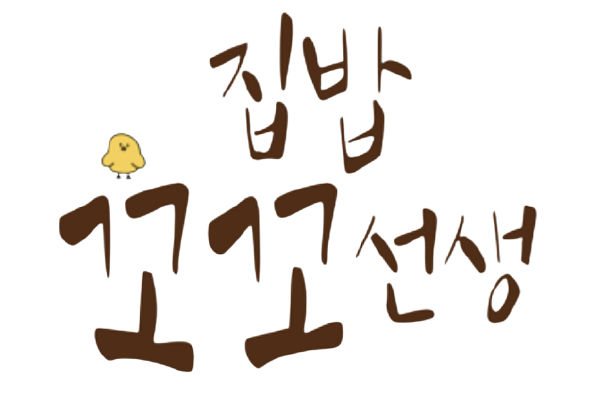 집밥
꼬꼬선생